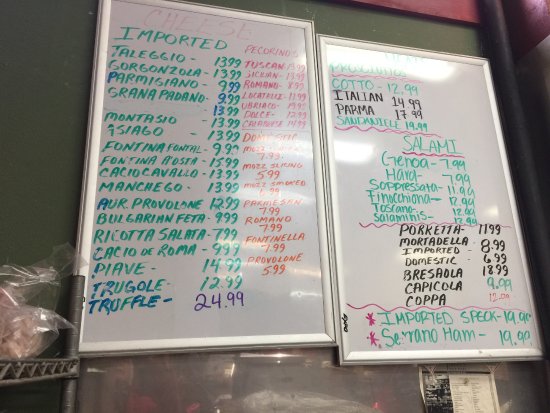 CHEESE
IMPORTED
TALEGGIO - 13.99
GORGONZOLA - 13.99
PARMIGIANO - 9.99
GRANA PADANO - 9.99
13.99
MONTASIO - 13.99
ASIAGO - 13.99
FONTINA FONTAL - 9.90
FONTINA A'OSTA - 15.99
CACIOCAVALLO - 13.99
MANCHEGO - 13.99
AUR. PROVOLONE 12.99
BULGARIAN FETA - 9.99
RICOTTA SALATA - 7.99
CACIO DE ROMA - 9.99
PIAVE - 14.99
TRUGOLE - 12.99
TRUFFLE - 24.99
PECORINO'S
TUSCAN - 13.99
SICILIAN - 13.99
ROMANO - 8.99
LOCATELLI - 12.99
UBRIACO - 19.99
DOLCE - 12.99
CALABRESE 14.99
DOMESTIC
MOZZ
7.99
MOZZ SLICING
5.99
MOZZ SMOKED
6.99
PARMESAN
7.99
ROMANO
7.99
FONTINELLA
7.99
PROVOLONE
5.99
PROSCIUTTOS
COTTO - 12.99
ITALIAN 14.99
PARMA 17.99
SANDANIELE 19.99
SALAMI
Genoa - 7.99
Hard - 7.99
Soppressata - 11.99
Finocchiona - 12.99
Toscano - 12.99
Salaminis - 12.99
PORKETTA - 11.99
MORTADELLA
IMPORTED - 8.99
DOMESTIC - 6.99
BRESAOLA 18.99
CAPICOLA 9.99
COPPA
* IMPORTED SPECK - 19.99
* Serrano Ham - 19.99